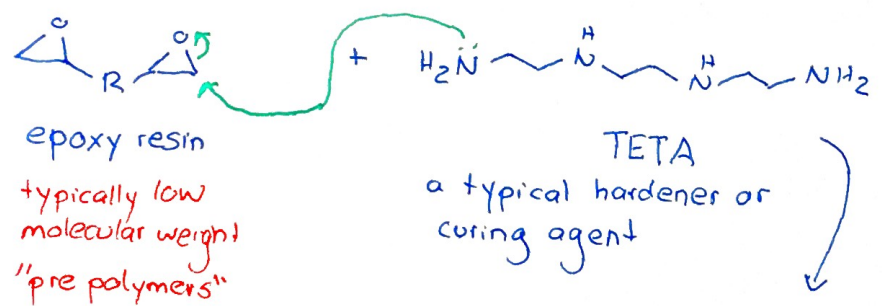 O
O
R
+
H2N̈
H
N
H
N
NH2
epoxy resin
typically low
molecular weight
"pre polymers"
TETA
a typical hardener or
curing agent